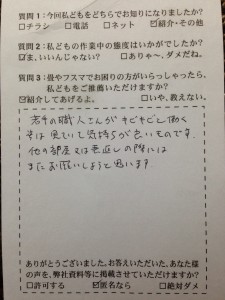 質問1:今回私どもをどちらでお知りになりましたか?
□チラシ □電話 □ネット ☑紹介・その他
質問2:私どもの作業中の態度はいかがでしたか?
☑ま、いいんじゃない? □ありゃ~、ダメだね。
質問3:畳やフスマでお困りの方がいらっしゃったら、
私どもをご推薦いただけますか?
☑紹介してあげるよ。 □いや、教えない。
若手の職人さんがキビキビと働く
そは見ていて気持ちが良いものです。
他の部屋も裏返しの際には
またお願いしようと思います
ありがとうございました。お答えいただいた、あなた様
の声を、弊社資料等に掲載させていただけますか?
□許可する ☑匿名なら □絶対ダメ